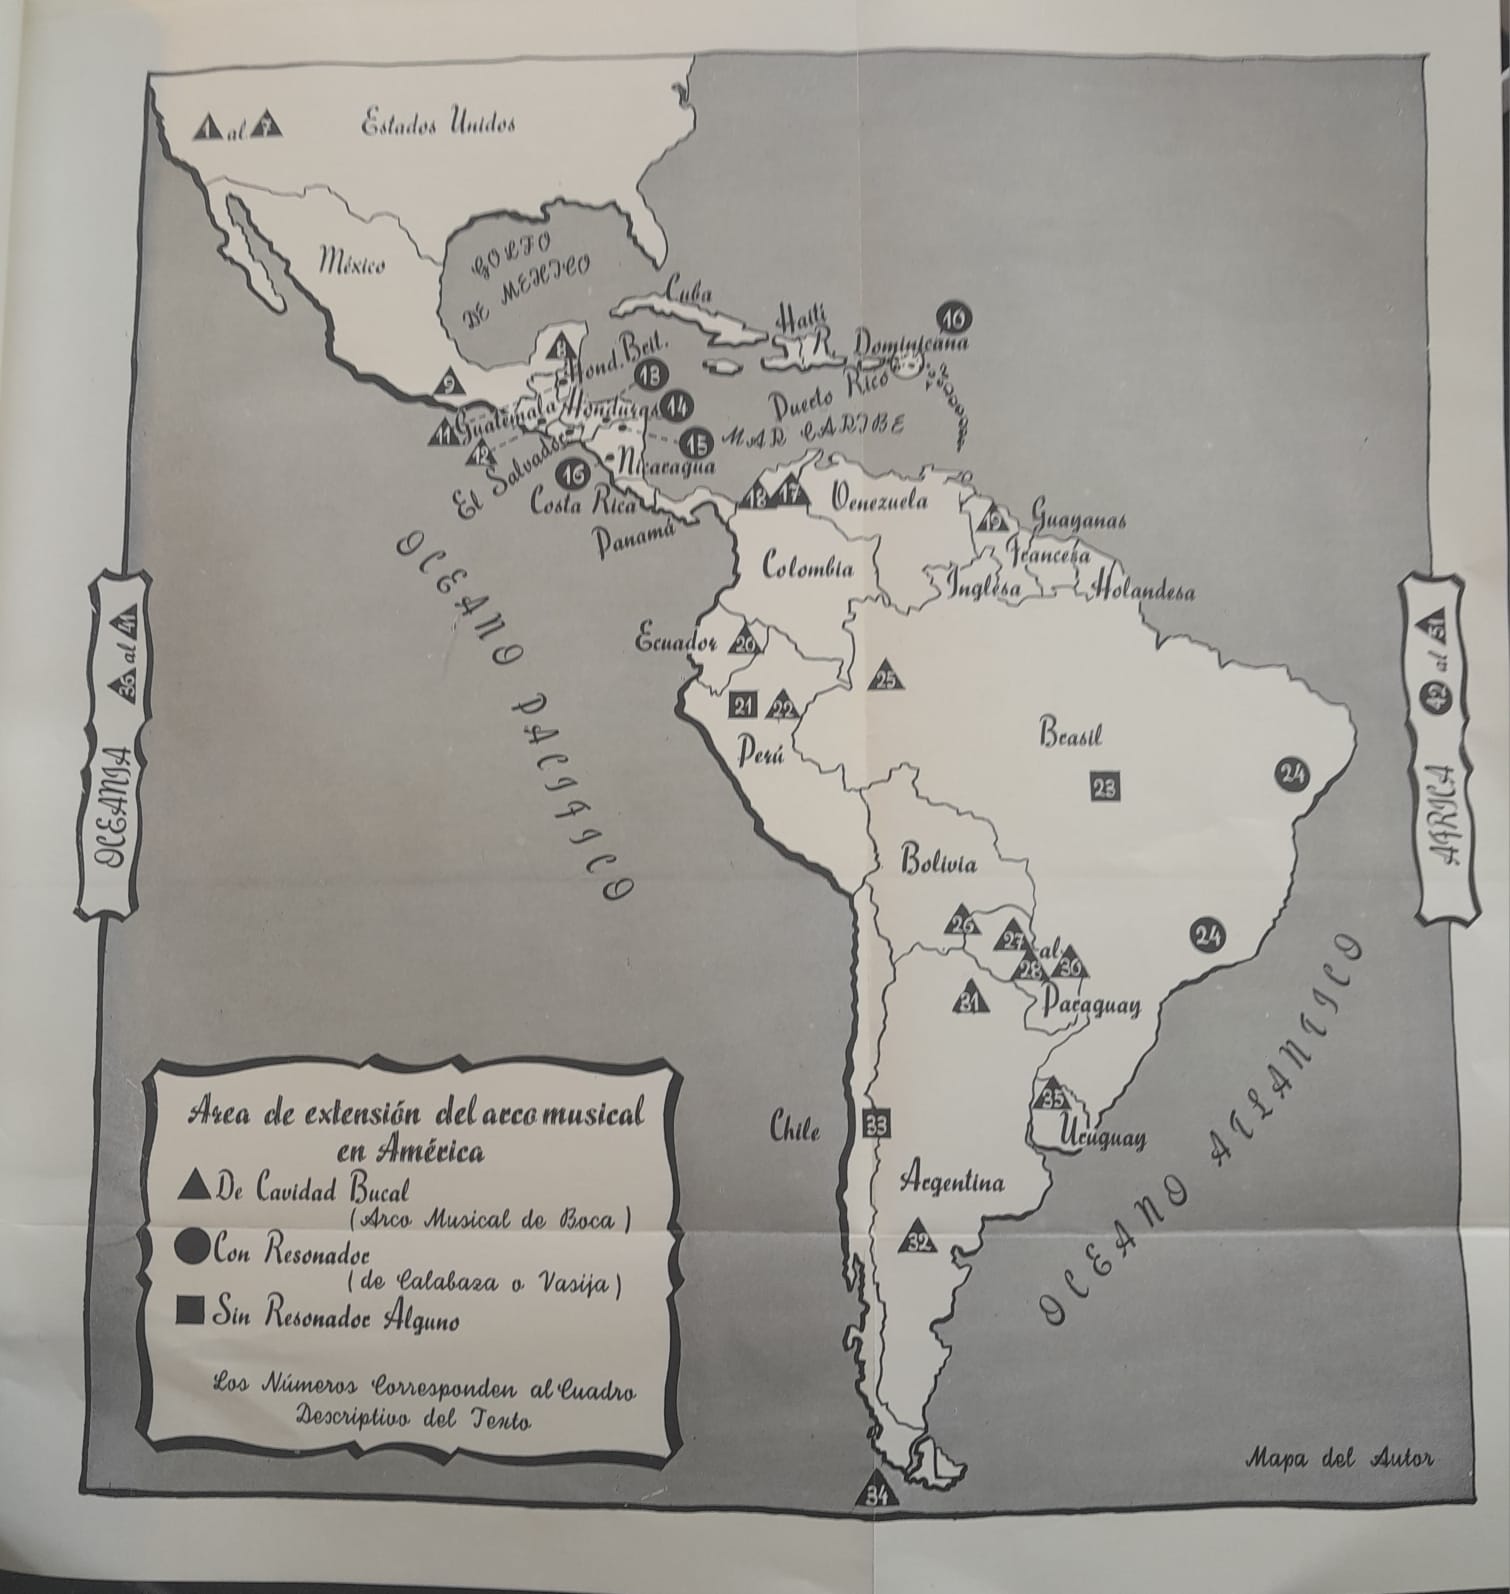 1 al 7
Estados Unidos
México
GOLFO
DE MEXICO
Cuba
Haití
R. Dominicana
10
Puerto Rico
8
Hond. Brit.
13
9
Guatemala
Honduras
14
11
12
El Salvador
15
MAR CARIBE
16
Nicaragua
Costa Rica
Panamá
18 17
Venezuela
19
Guayanas
Francesa
Inglesa
Holandesa
Colombia
OCEANO PACIFICO
Ecuador
20
21 22
25
Perú
Brasil
23
24
Bolivia
24
26
27 al
28 30
31
Paraguay
OCEANO ATLANTICO
35
Uruguay
Chile
33
Argentina
32
34
OCEANIA 36 al 41
AFRICA 42 al 51
Area de extensión del arco musical
en América
De Cavidad Bucal
(Arco Musical de Boca)
Con Resonador
(de Calabaza o Vasija)
Sin Resonador Alguno
Los Números Corresponden al Cuadro
Descriptivo del Texto
Mapa del Autor